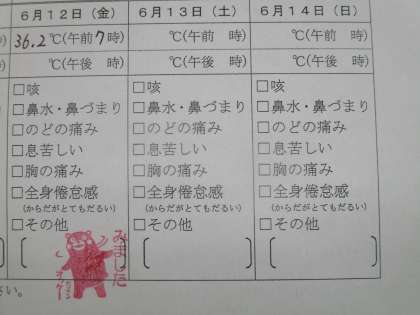 6月12日(金) 6月13日(土) 6月14日(日)
36.2℃(午前7時) ℃(午前 時) ℃(午前 時)
℃(午後 時) ℃(午後 時) ℃(午後 時)
□咳 □咳 □咳
□鼻水・鼻づまり □鼻水・鼻づまり □鼻水・鼻づまり
□のどの痛み □のどの痛み □のどの痛み
□息苦しい □息苦しい □息苦しい
□胸の痛み □胸の痛み □胸の痛み
□全身倦怠感 □全身倦怠感 □全身倦怠感
(からだがとてもだるい) (からだがとてもだるい) (からだがとてもだるい)
□その他 □その他 □その他
みました
さい。